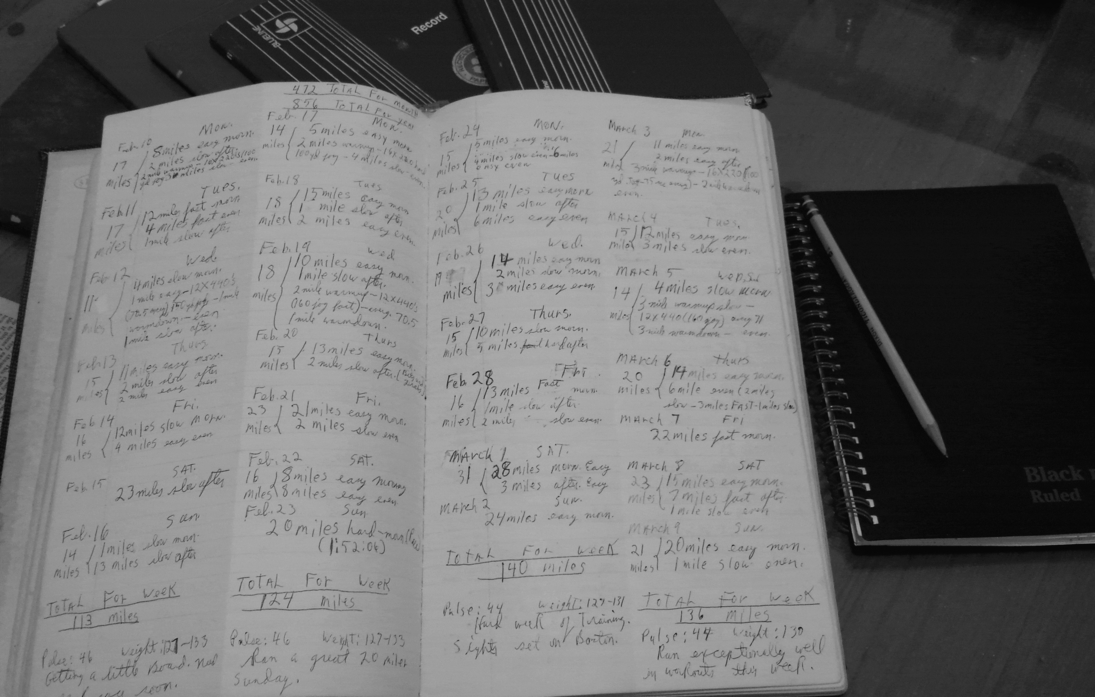 BLUELINE
Record
472 Total For Month
856 Total For year
Feb. 10 Mon.
17 miles
8 miles easy morn.
2 miles slow after
Feb 11 Tues.
17 miles
12 miles fast morn
4 miles fast even
1 mile slow after
Feb 12 Wed.
11 miles
4 miles slow morn.
1 mile easy - 12X440s
warmdown - even
1 mile slow after.
Feb 13 Thurs
15 miles
11 miles easy morn.
2 miles slow after
2 miles easy even
Feb 14 Fri.
16 miles
12 miles slow morn
4 miles easy even
Feb 15 SAT.
23 miles slow after
Feb. 16 Sun.
14 miles
1 miles slow morn
13 miles slow after
Total For Week
113 miles
Pulse: 46 weight: 127-133
Getting a little Bored.
soon.
Feb. 17 Mon.
14 miles
5 miles easy morn
2 miles warmup - 14X220
4 miles slow even
Feb. 18 Tues
18 miles
15 miles easy morn
1 mile slow after
2 miles easy even
Feb. 19 Wed
18 miles
10 miles easy morn.
1 mile slow after.
2 mile warmup - 12X440s
(060 jog fast) - avg. 70.5
1 mile warmdown.
Feb. 20 Thurs
15 miles
13 miles easy morn
2 miles slow after
Feb. 21 Fri.
23 miles
21 miles easy morn
2 miles slow even
Feb. 22 SAT.
16 miles
8 miles easy morning
8 miles easy even
Feb. 23 Sun
20 miles hard-morn
(1:52:06)
Total For Week
124 miles
Pulse: 46 Weight: 127-133
Ran a great 20 miler
Sunday.
Feb. 24 Mon.
15 miles
5 miles easy morn
4 miles slow even - 6 miles
easy even
Feb. 25 Tues
20 miles
13 miles easy morn
1 mile slow after
6 miles easy even
Feb. 26 Wed.
19 miles
14 miles easy morn
2 miles slow morn.
3 miles easy even
Feb. 27 Thurs.
15 miles
10 miles slow morn.
5 miles after
Feb 28 Fri.
16 miles
13 miles Fast morn
1 mile slow after
2 miles slow even
March 1 SAT.
31
28 miles morn. Easy
3 miles after. Easy
March 2 Sun.
24 miles easy morn.
Total For Week
140 miles
Pulse: 44 weight: 127-131
Hard week of Training.
Sights set on Boston.
March 3 Mon
21 miles
11 miles easy morn
2 miles easy after
3 mile warmup - 16X220
even
March 4 Tues.
15 miles
12 miles easy morn
3 miles slow even.
March 5 Wed.
14 miles
4 miles slow morn
3 mile warmup slow -
12X440 (60 jog) avg 71
3 mile warmdown - even.
March 6 Thurs
20 miles
14 miles easy morn.
6 mile even (2 miles
slow - 3 miles Fast - 1 miles slow
March 7 Fri
22 miles fast morn.
March 8 SAT
23 miles
15 miles easy morn.
7 miles fast after
1 mile slow even
March 9 Sun.
21 miles
20 miles easy morn.
1 mile slow even.
Total For Week
136 Miles
Pulse: 44 weight: 130
Ran exceptionally well
in workouts this week.
Black
Ruled